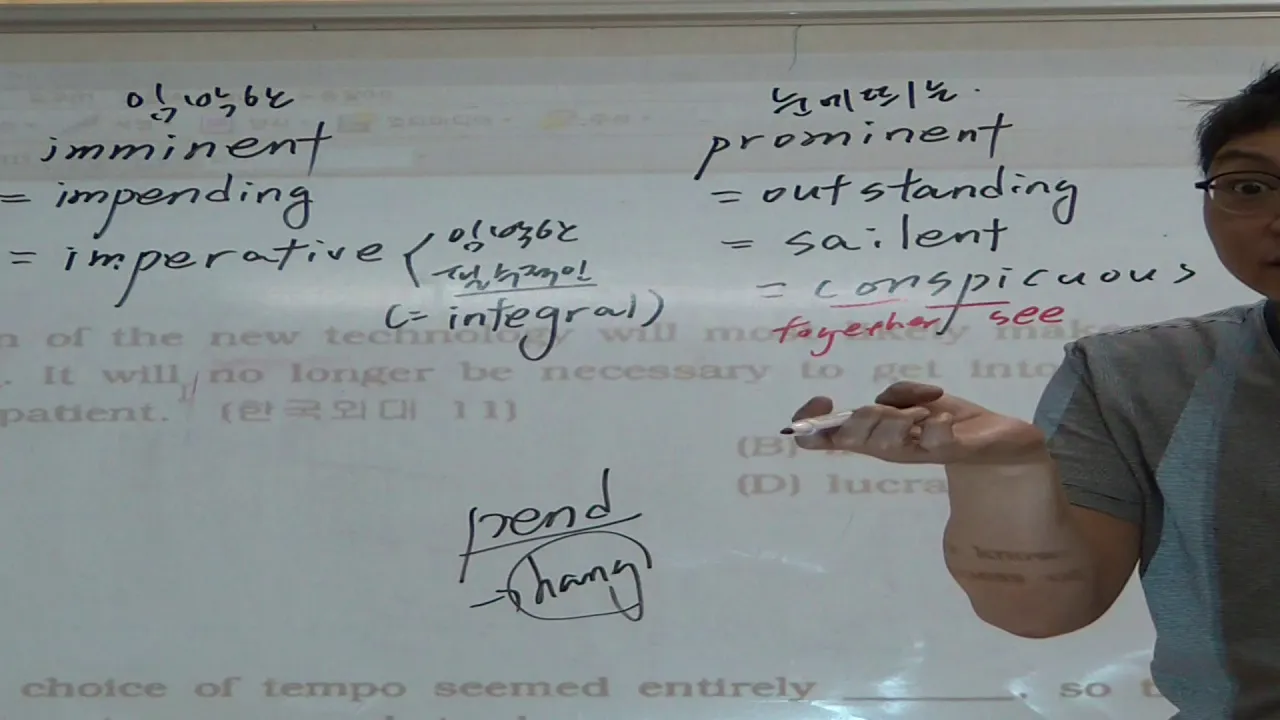 임박한
imminent
= impending
= imperative
임박한
필수적인
(= integral)
눈에띄는.
prominent
= outstanding
= sailent
= conspicuous
together/ see
n of the new technology will mo
. It will no longer be necessary to get into
patient. (한국외대 11)
(B)
(D) lucra
pend
→ hang
choice of tempo seemed entirely ________. so t